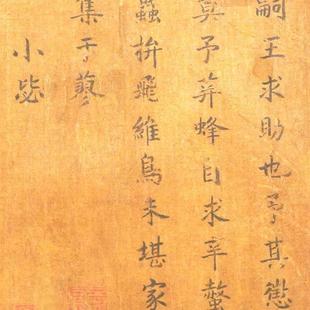 嗣王求助也予其懲
莫予荓蜂自求辛螫
蟲拚飛維鳥未堪家
集于蓼
小毖